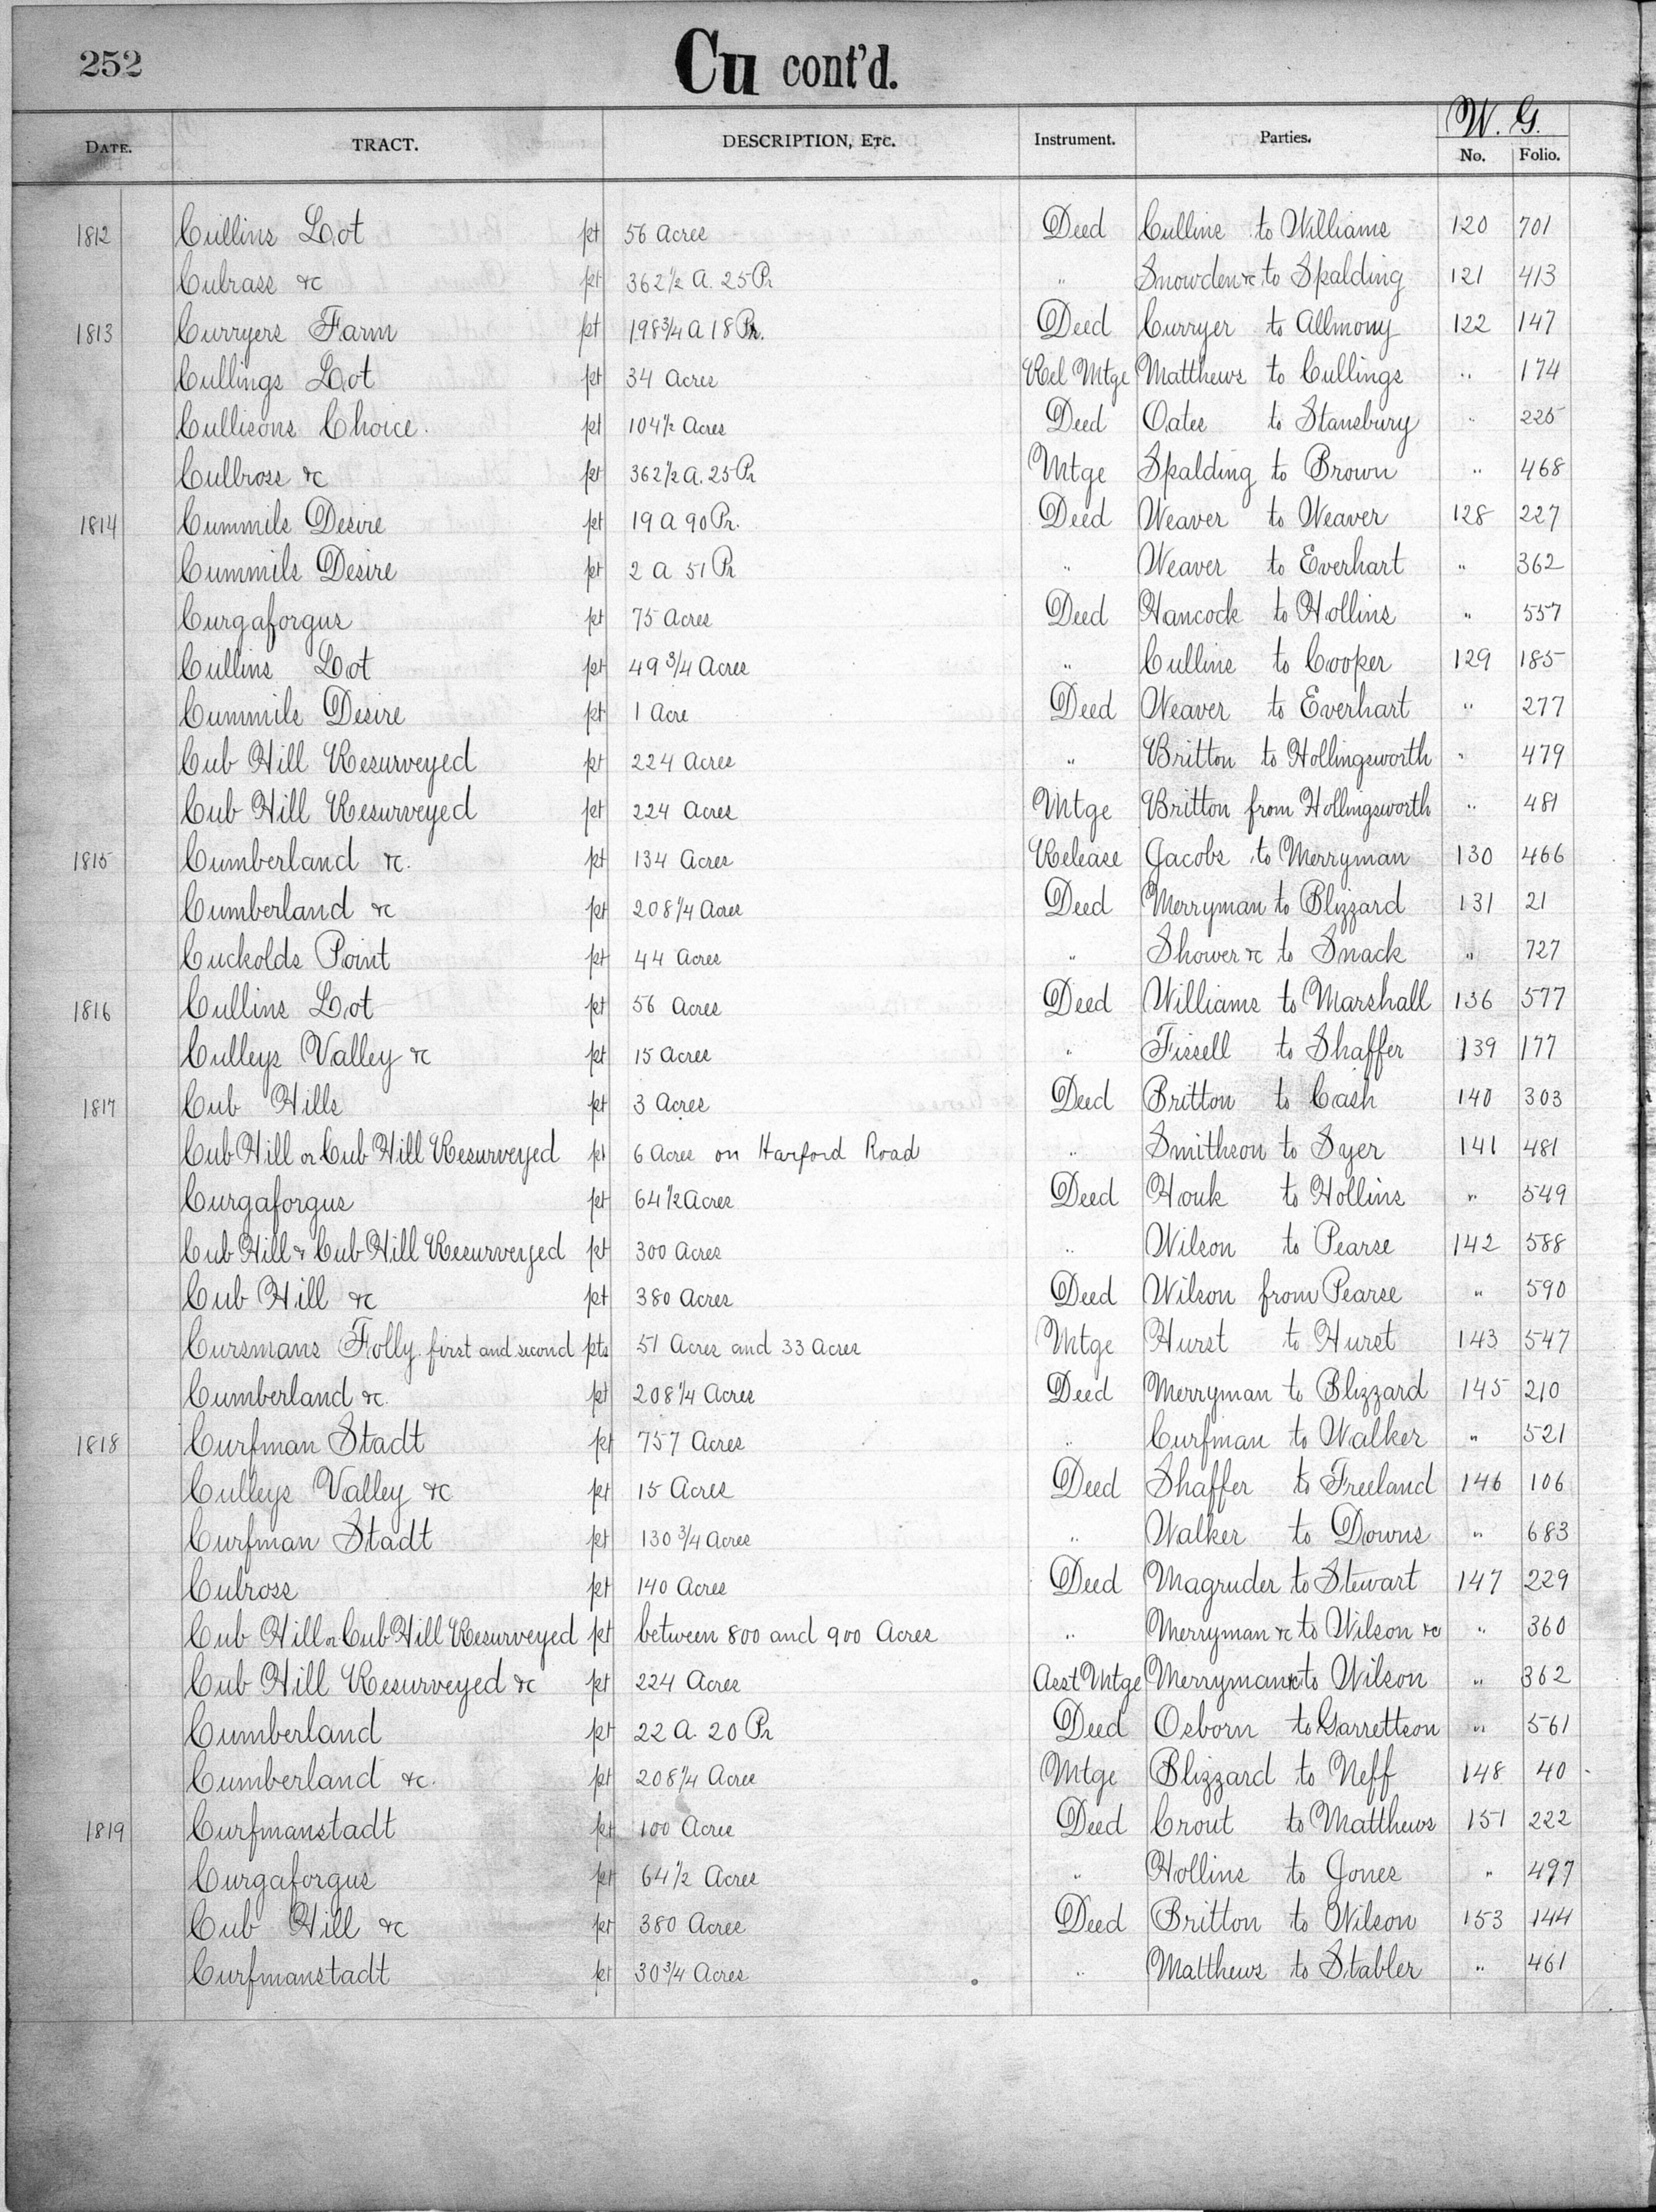 252
Cu cont'd.
W. G.
DATE. TRACT. DESCRIPTION, ETC. Instrument. Parties. No. Folio.
1812 Cullins Lot pt 56 Acres Deed Cullins to Williams 120 701
Culrass &c pt 362½ A. 25 Pr " Snowden &c to Spalding 121 413
1813 Curryers Farm pt 198¾ A 18 Pr. Deed Curryer to Allmony 122 147
Cullings Lot pt 34 Acres Rel Mtge Matthews to Cullings " 174
Cullisons Choice. pt 104½ Acres Deed Oates to Stansbury " 225
Cullross &c pt 362½ A. 25 Pr Mtge Spalding to Brown " 468
1814 Cummils Desire pt 19 A 90 Pr. Deed Weaver to Weaver 128 227
Cummils Desire pt 2 A 51 Pr " Weaver to Everhart " 362
Curgaforgus pt 75 Acres Deed Hancock to Hollins " 557
Cullins Lot pt 49 3/4 Acres " Cullins to Cooper 129 185
Cummils Desire pt 1 Acre Deed Weaver to Everhart " 277
Cub Hill Resurveyed pt 224 Acres " Britton to Hollingsworth " 479
Cub Hill Resurveyed pt 224 Acres Mtge Britton from Hollingsworth " 481
1815 Cumberland &c. pt 134 Acres Release Jacobs to Merryman 130 466
Cumberland &c pt 208¼ Acres Deed Merryman to Blizzard 131 21
Cuckolds Point pt 44 Acres " Shower &c to Snack " 727
1816 Cullins Lot pt 56 Acres Deed Williams to Marshall 136 577
Culleys Valley &c pt 15 Acres " Fissell to Shaffer 139 177
1817 Cub Hills pt 3 Acres Deed Britton to Cash 140 303
Cub Hill or Cub Hill Resurveyed pt 6 Acres on Harford Road " Smithson to Syer 141 481
Curgaforgus pt 64½ Acres Deed Houk to Hollins " 549
Cub Hill & Cub Hill Resurveyed pt 300 Acres " Wilson to Pearse 142 588
Cub Hill &c pt 380 Acres Deed Wilson from Pearse " 590
Cursmans Folly first and second pts 51 Acres and 33 Acres Mtge Hurst to Hurst 143 547
Cumberland &c. pt 208¼ Acres Deed Merryman to Blizzard 145 210
1818 Curfman Stadt pt 757 Acres " Curfman to Walker " 521
Culleys Valley &c pt 15 Acres Deed Shaffer to Freeland 146 106
Curfman Stadt pt 130 3/4 Acres " Walker to Downs " 683
Culross pt 140 Acres Deed Magruder to Stewart 147 229
Cub Hill or Cub Hill Resurveyed pt between 800 and 900 Acres " Merryman &c to Wilson &c " 360
Cub Hill Resurveyed &c pt 224 Acres Asst Mtge Merryman &c to Wilson " 362
Cumberland pt 22 A. 20 Pr Deed Osborn to Garrettson " 561
Cumberland &c. pt 208¼ Acres Mtge Blizzard to Neff 148 40
1819 Curfmanstadt pt 100 Acres Deed Crout to Matthews 151 222
Curgaforgus pt 64½ Acres " Hollins to Jones " 497
Cub Hill &c pt 380 Acres Deed Britton to Wilson 153 144
Curfmanstadt pt 30¾ Acres " Matthews to Stabler " 461